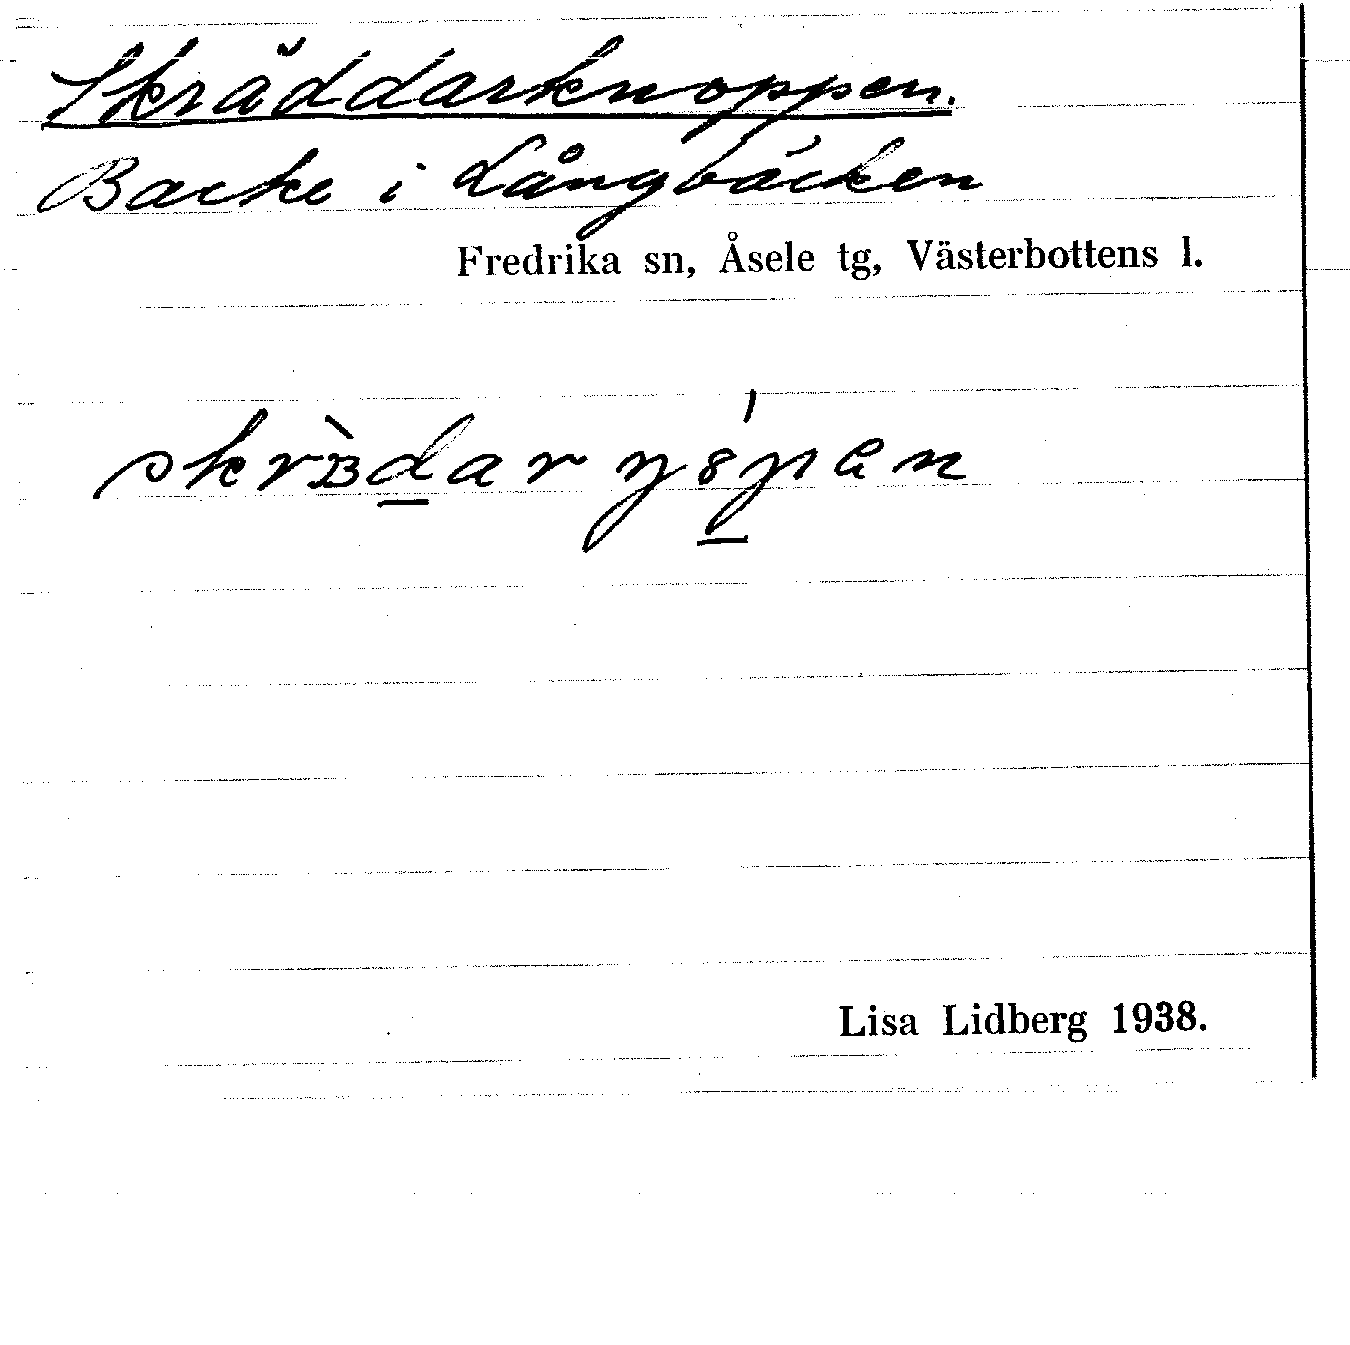 Skräddarknoppen.
Backe i Långbäcken
Fredrika sn, Åsele tg, Västerbottens l.
Lisa Lidberg 1938.